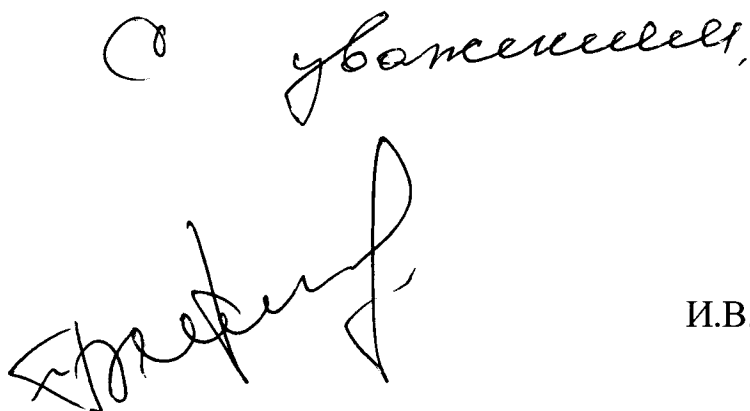 С уважением,
И.В.